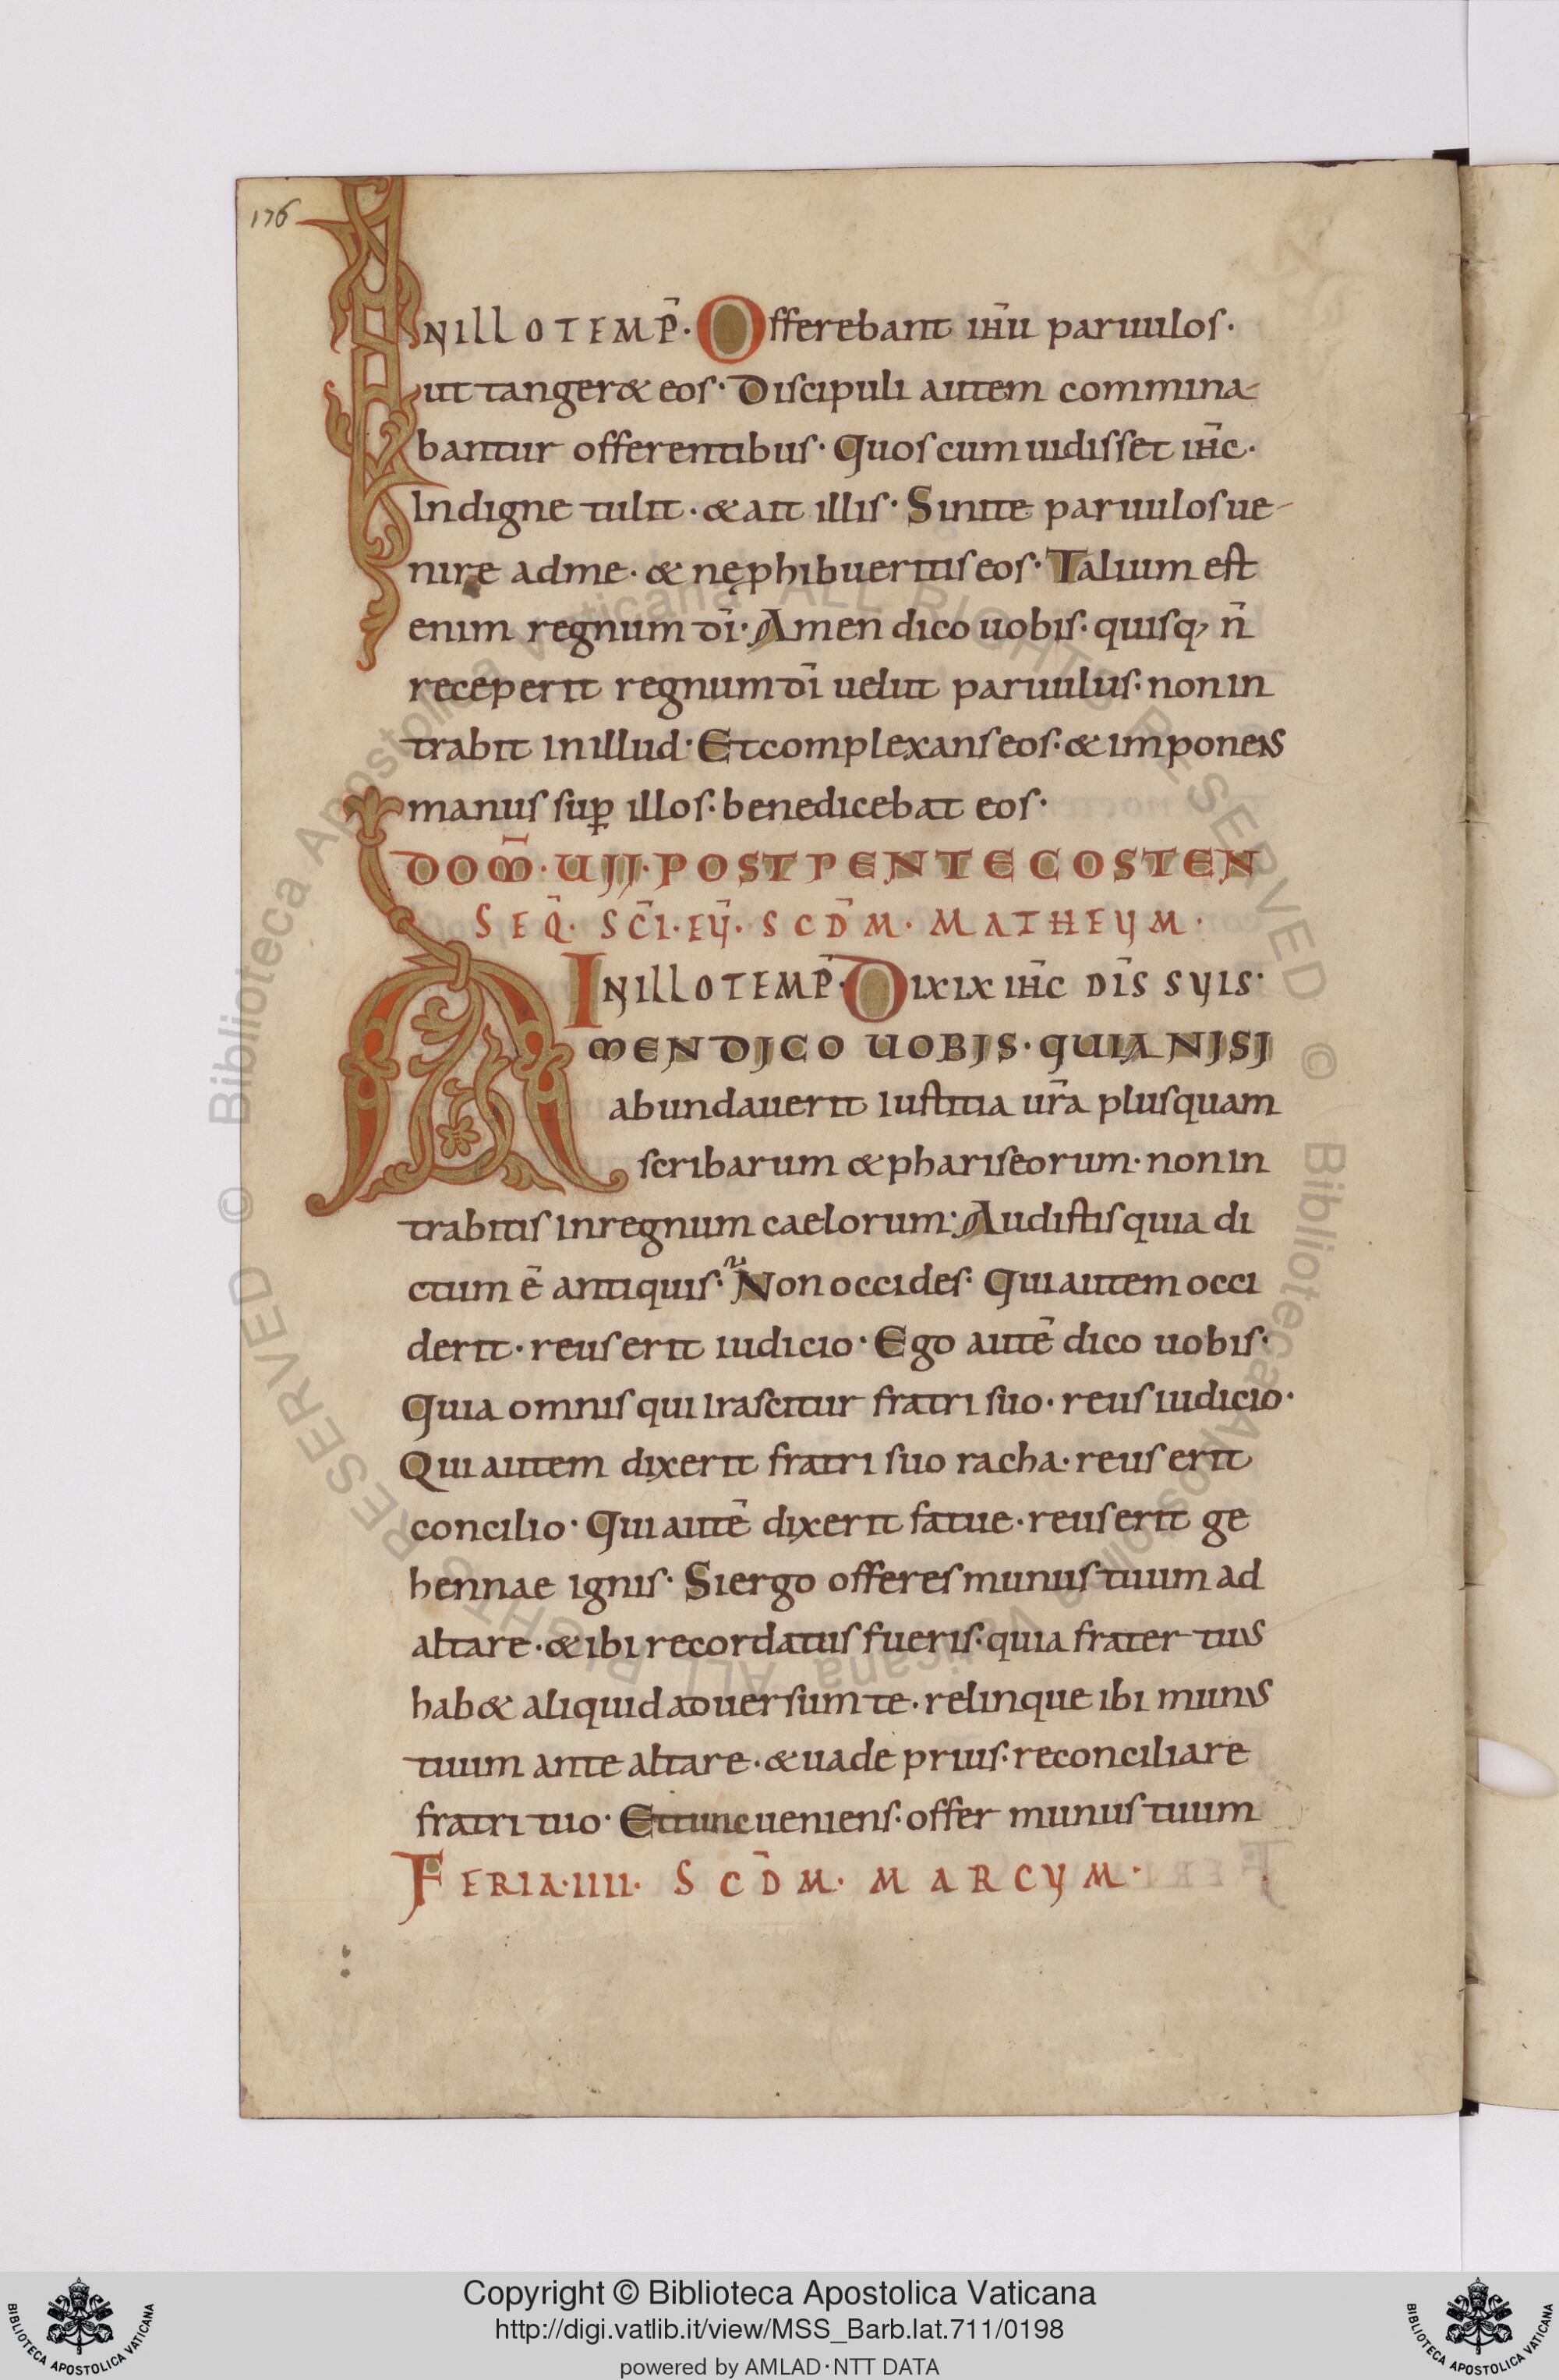 176
INILLOTEMP̄· Offerebant ιħū paruulos·
ut tanger& eos· Discipuli autem commina-
bantur offerentibus· Quos cum uidisset ιħc·
Indigne tulit· & ait illis· Sinite paruulos ue-
nire ad me· & ne phibueritis eos· Talium est
enim regnum dī· Amen dico uobis· quisq, n̄
receperit regnum dī uelut paruulus· non in
trabit in illud· Et complexans eos· & imponens
manus sup illos· benedicebat eos·
DOM̄· UII· POST PENTECOSTEN
SEQ̄· SC̄I· EŪ· SCD̄M· MATHEUM·
IN ILLO TEMP̄· DIXIX IĦC DĪS SUIS·
AMEN DICO UOBIS· QUIA NISI
abundauerit Iustitia ur̄a plus quam
scribarum & phariseorum· non in
trabitis in regnum caelorum· Audistis quia di
ctum ē antiquis· Non occides· Qui autem occi
derit· reus erit iudicio· Ego autē dico uobis·
Quia omnis qui Irascitur fratri suo· reus iudicio·
Qui autem dixerit fratri suo racha· reus erit
concilio· Qui autē dixerit fatue· reus erit ge
hennae ignis· Si ergo offeres munus tuum ad
altare· & ibi recordatus fueris· quia frater tuus
hab& aliquid aduersum te· relinque ibi munus
tuum ante altare· & uade prius· reconciliare
fratri tuo· Et tunc ueniens· offer munus tuum
FERIA· IIII· SCD̄M· MARCUM·
Copyright © Biblioteca Apostolica Vaticana
http://digi.vatlib.it/view/MSS_Barb.lat.711/0198
powered by AMLAD·NTT DATA
BIBLIOTECA APOSTOLICA VATICANA
BIBLIOTECA APOSTOLICA VATICANA
© Biblioteca Apostolica Vaticana ALL RIGHTS RESERVED © Biblioteca Apostolica Vaticana ALL RIGHTS RESERVED